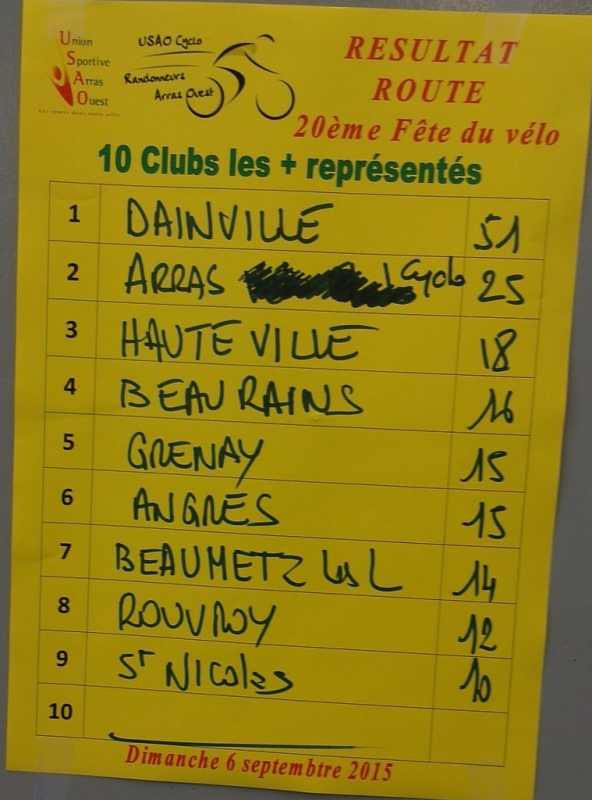 Union
Sportive
Arras
Ouest
USAO Cyclo
Randonneurs
Arras Ouest
RESULTAT
ROUTE
20ème Fête du vélo
10 Clubs les + représentés
1 DAINVILLE 51
2 ARRAS Cyclo 25
3 HAUTEVILLE 18
4 BEAURAINS 16
5 GRENAY 15
6 ANGRES 15
7 BEAUMETZ les L 14
8 ROUVROY 12
9 St NICOLAS 10
10
Dimanche 6 septembtre 2015